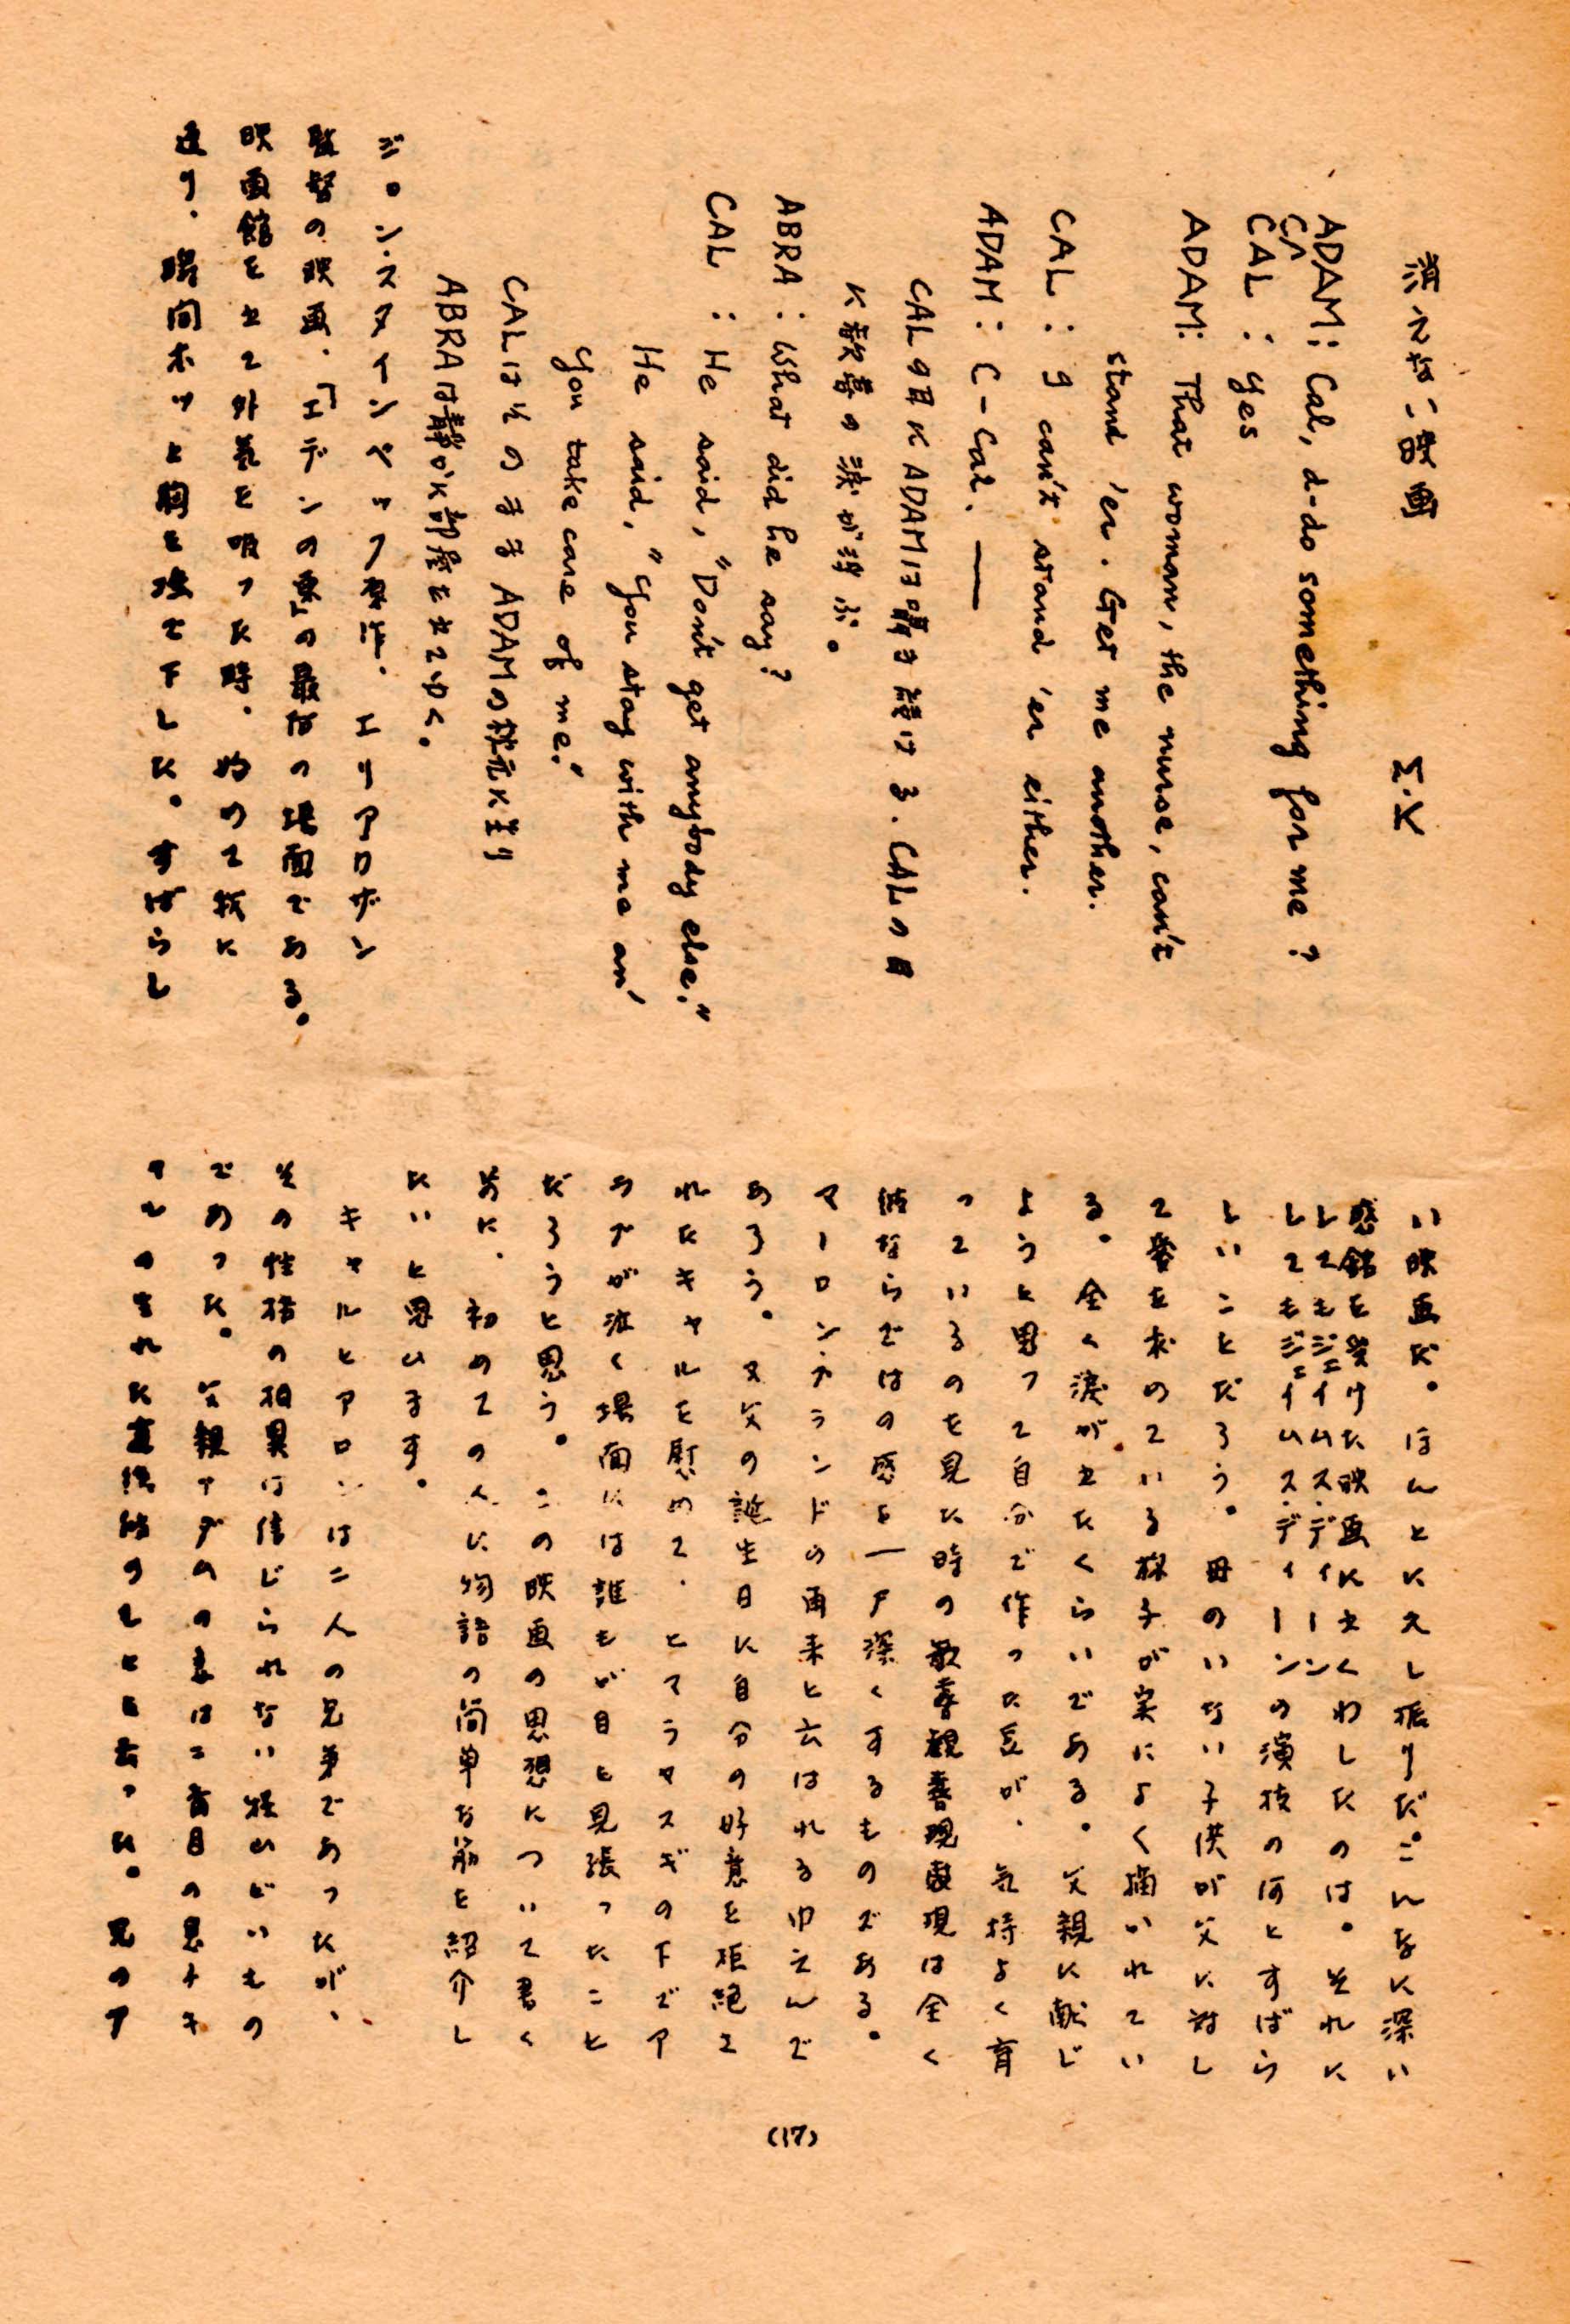 消えない映画
M.K
ADAM: Cal, d-do something for me?
CAL : Yes
ADAM: That woman, the nurse, can't
stand 'er. Get me another.
CAL : I can't stand 'er either.
ADAM: C-Cal. ——
CALの耳にADAMは囁き続ける. CALの目
に歓喜の涙が浮ぶ。
ABRA : What did he say?
CAL : He said, "Don't get anybody else."
He said, "You stay with me an'
you take care of me."
CALはそのまま ADAMの枕元に坐り
ABRAは静かに部屋を出てゆく。
ジョン・スタインベック原作. エリアロザン
監督の映画.「エデンの東」の最后の場面である。
映画館を出て外気を吸った時. 始めて我に
返り. 瞬間ホッと胸を撫で下した。すばらし
い映画だ。ほんとに久し振りだ。こんなに深い
感銘を受けた映画に出くわしたのは。それに
してもジェイムス・ディーン
してもジェイムス・ディーンの演技の何とすばら
しいことだろう。母のいない子供が父に対し
て愛を求めている様子が実によく描かれてい
る。全く涙が出たくらいである。父親に献じ
ようと思って自分で作った豆が. 気持よく育
っているのを見た時の歓喜現は全く
彼ならではの感を一戸深くするものである。
マーロン・ブランドの再来と云はれるゆえんで
あろう。又父の誕生日に自分の好意を拒絶さ
れたキャルを慰めて. とてラヤスギの下でア
ブラが泣く場面には誰もが目を見張ったこと
だろうと思う。この映画の思想について書く
前に. 初めての人に物語の簡単な筋を紹介し
たいと思います。
キャルとアロンは二人の兄弟であったが、
その性格の相異は信じられない程ひどいもの
であった。父親アダムの妻は二番目の息子キ
ャルの生れた直後彼のもとを去った。兄のア
(17)